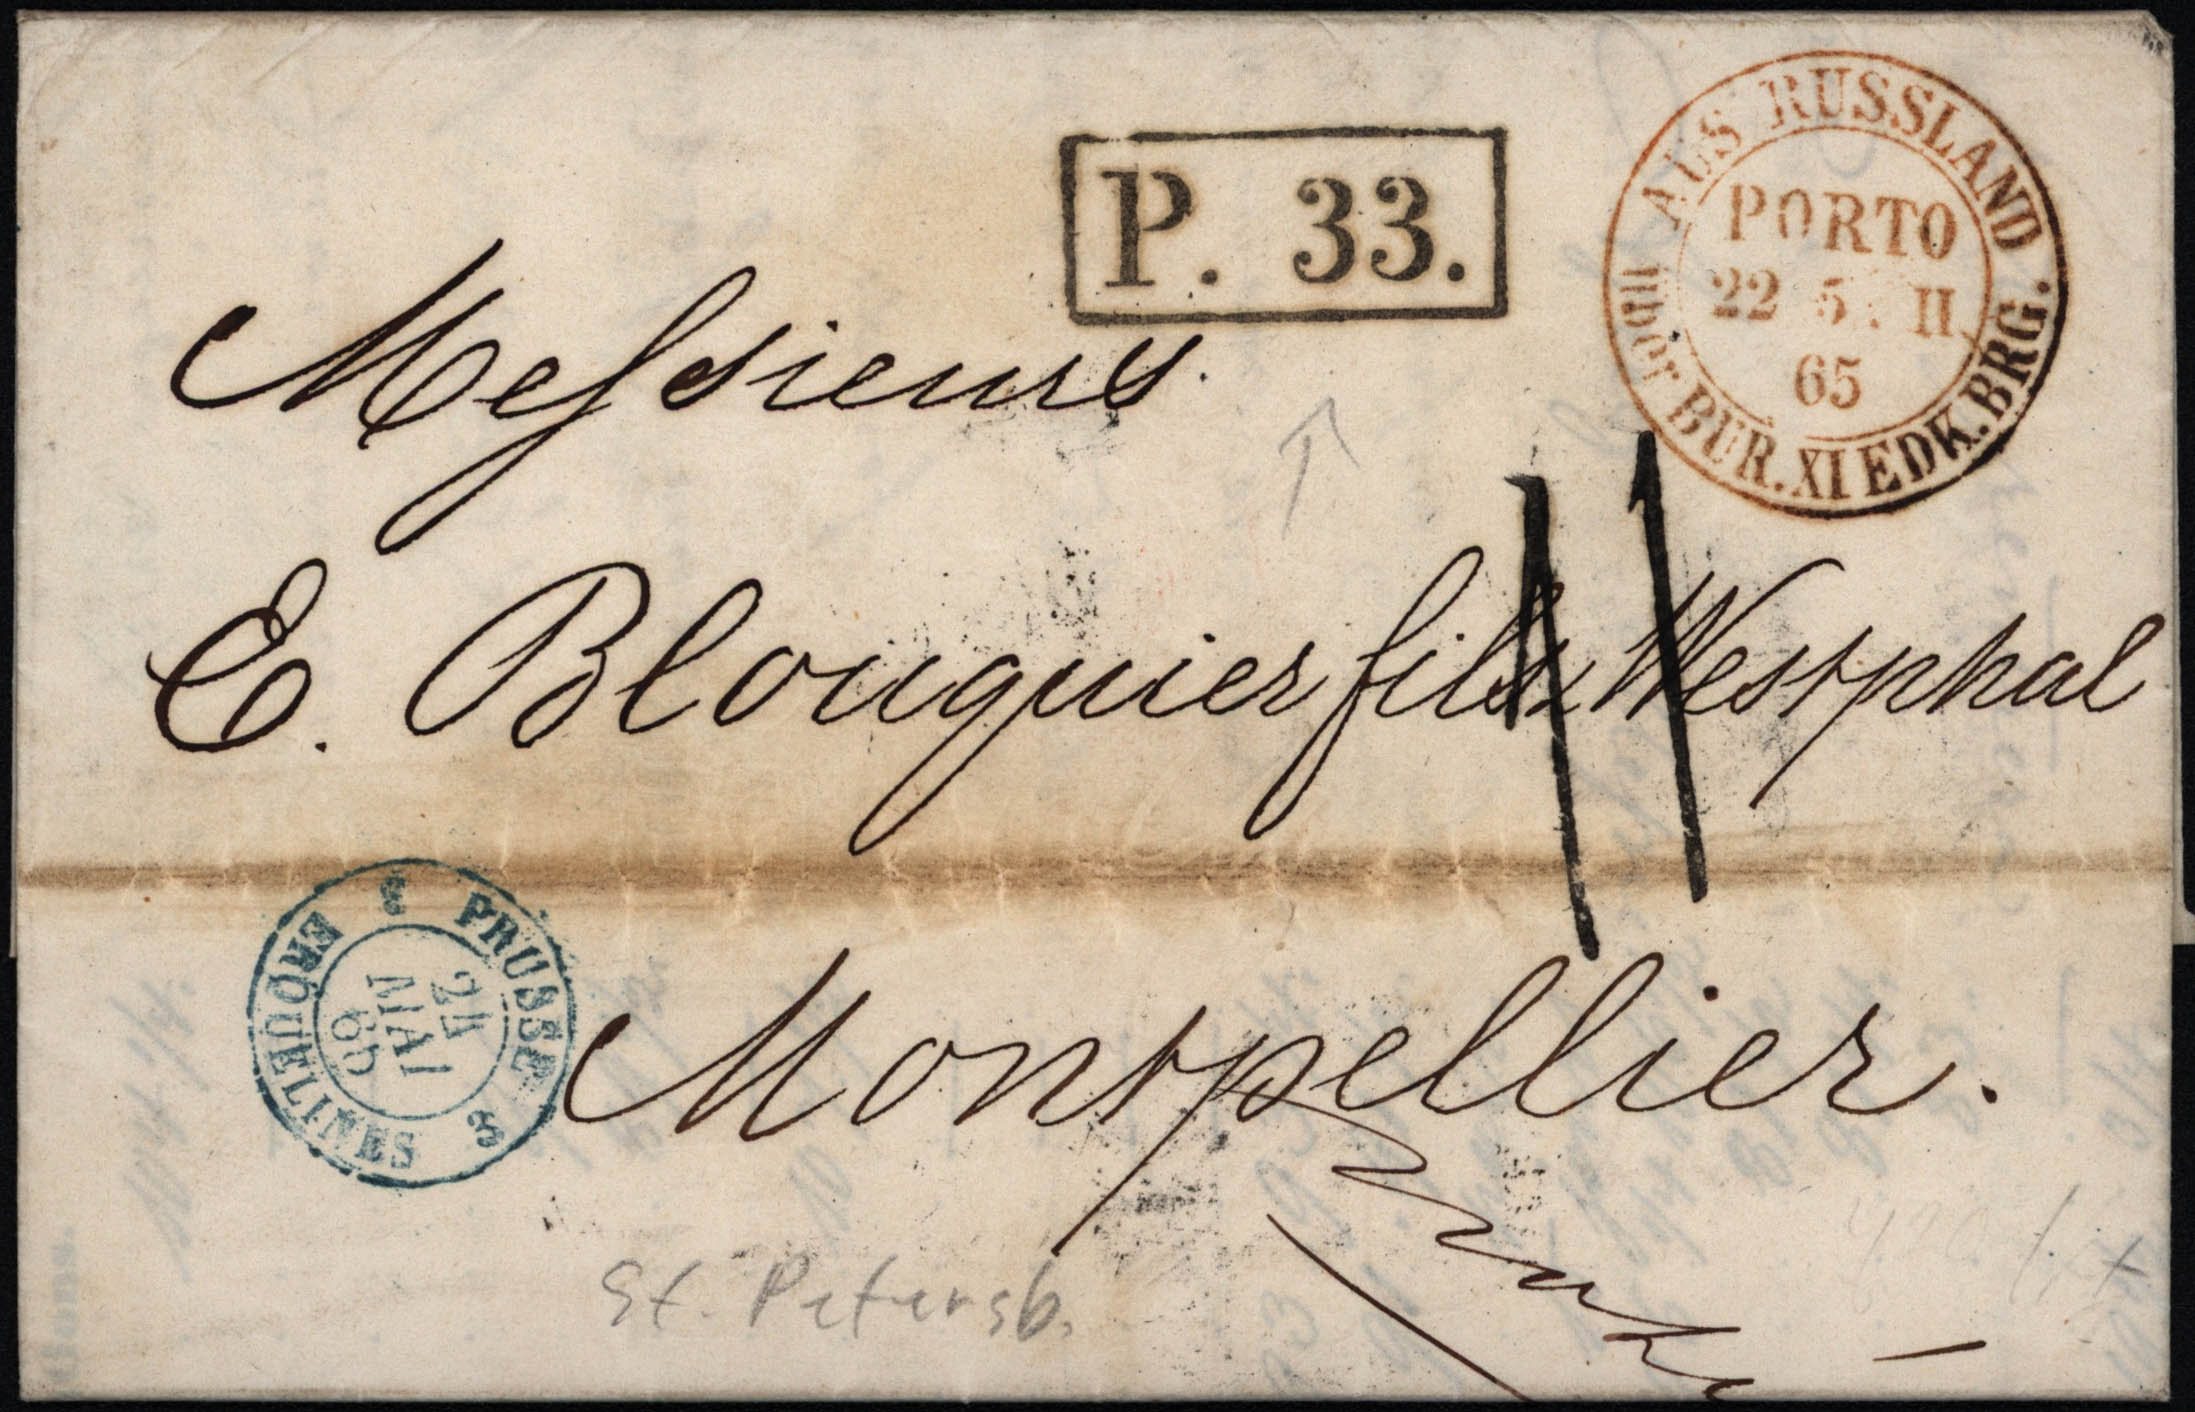 AUS RUSSLAND.
über BUR. XI EDK. BRG.
PORTO
22 5. II
65
P. 33.
Messieurs
E. Blouquier fils & Westphal
11
Montpellier.
3 PRUSSE 3
ERQUELINES
24
MAI
65
St. Petersb.